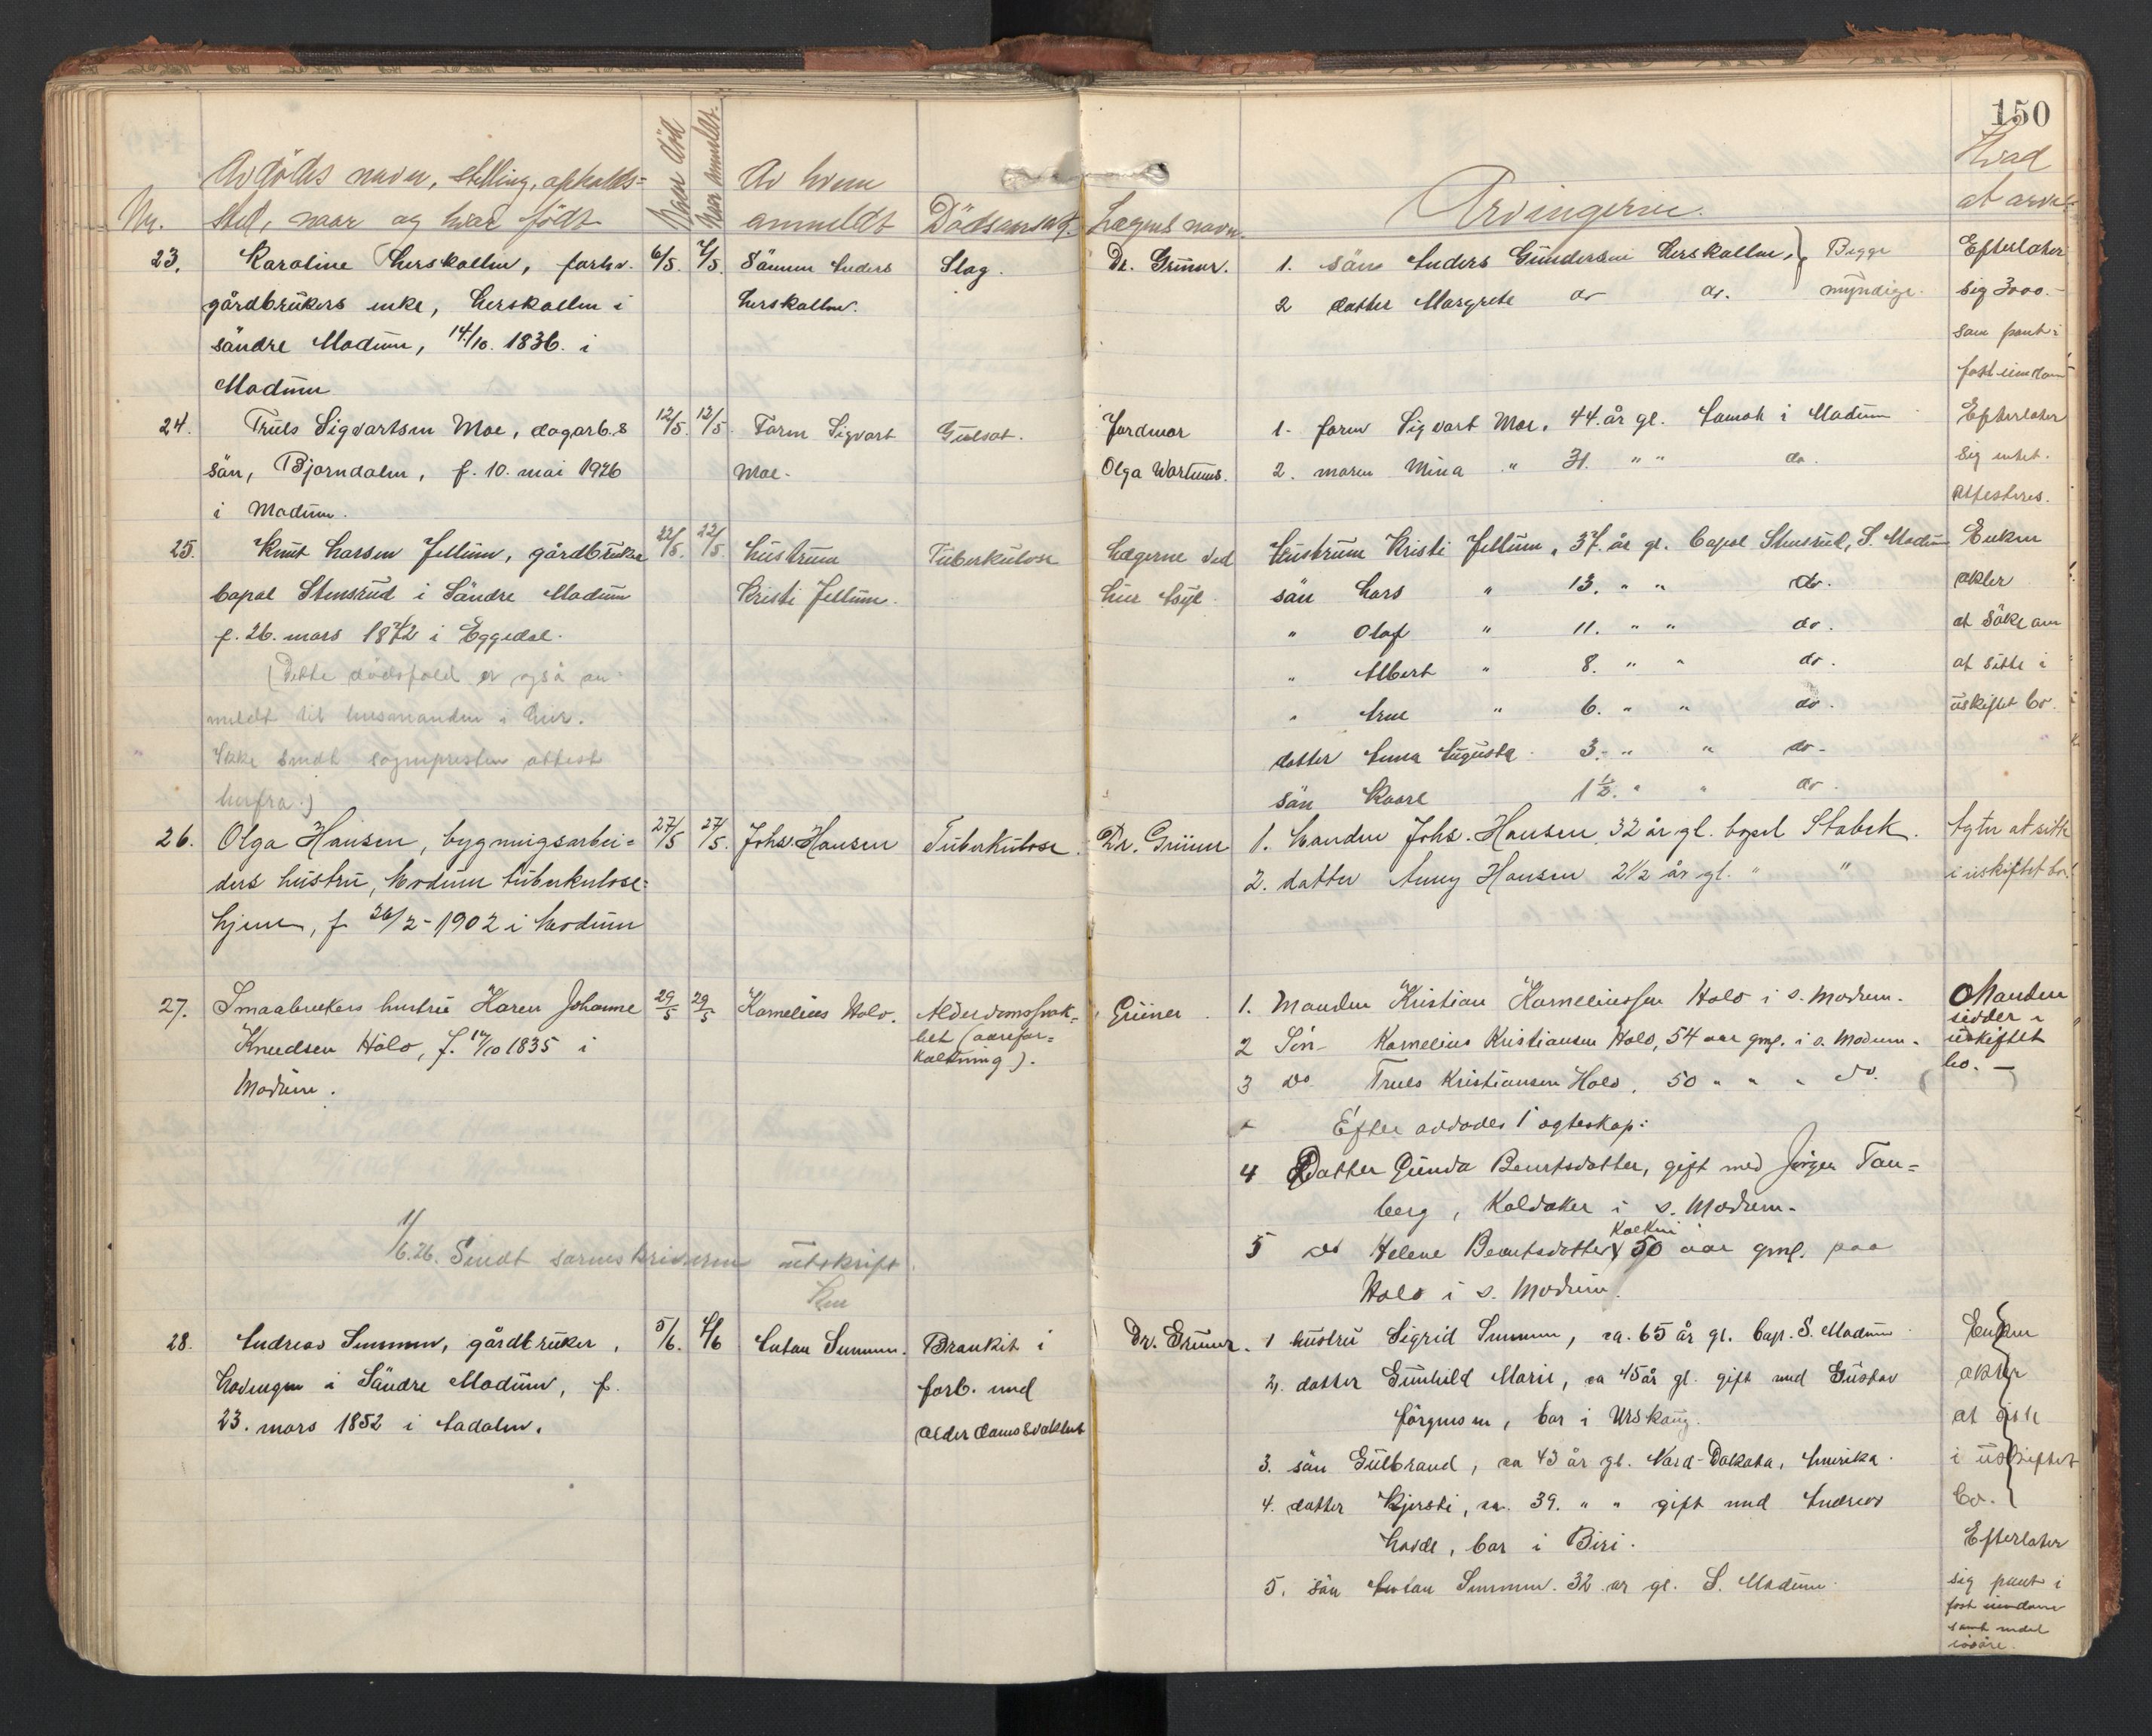 150
Nr.
Avdødes navn, stilling, opholds-
sted, naar og hvor født
Naar død
Naar anmeldt.
Av hvem
anmeldt
Dødsaarsag.
Lægens navn.
Arvingerne.
Hvad
at arve
23.
Karoline Aerskollen, forhv.
gårdbrukers enke, Aerskollen i
søndre Modum, 14/10. 1836. i
Modum
6/5.
7/5.
Sønnen Anders
Aerskollen.
Slag.
Dr. Grüner.
1. søn Anders Gundersen Aerskollen,
2 datter Margrete do do.
} Begge
myndige.
Efterlater
sig 3000.-
som pant i
fast eiendom
24.
Truls Sigvartsen Moe, dagarb.s
søn, Bjørndalen, f. 10. mai 1926
i Modum.
12/5.
12/5.
Faren Sigvart
Moe.
Gulsot.
Jordmor
Olga Wortums.
1. faren Sigvart Moe, 44. år gl. Åmot i Modum
2. moren Mina " 31. " " do.
Efterlater
sig intet.
Attesteres.
25.
Knut Larsen Jellum, gårdbruker
bopæl Stensrud i Søndre Modum
f. 26. mars 1872 i Eggedal.
(Dette dødsfald er også an-
meldt til lensmanden i Lier.
Ikke sendt sognepresten attest
herfra.)
22/5.
22/5.
Hustruen
Kristi Jellum.
Tuberkulose
Lægerne ved
Lier Asyl
Hustruen Kristi Jellum, 37. år gl. Bopæl Stensrud, S. Modum
søn Lars " 13. " " do.
" Olaf " 11. " " do.
" Albert " 8. " " do.
" Arne " 6. " " do.
datter Anna Augusta 3. " " do.
søn Kaare 1½. " " do
Enken
akter
at søke om
at sitte i
uskiftet bo.
26.
Olga Hansen, bygningsarbei-
ders hustru, Modum tuberkulose-
hjem, f. 26/2-1902 i Modum
27/5
27/5.
Johs. Hansen
Tuberkulose.
Dr. Grüner
1. Manden Johs. Hansen 32 år gl. bopæl Stabek.
2. datter Anny Hansen 2½ år gl. " "
Agter at sitte
i uskiftet bo.
27.
Smaabrukers hustru Karen Johanne
Knudsen Holo, f. /10 1835 i
Modum.
29/5
29/5
Kornelius Holo.
Alderdomssvak-
het (aarefor-
kalkning).
Grüner.
1. Manden Kristian Korneliussen Holo i s. Modum.
2 Søn Kornelius Kristiansen Holo, 54 aar gml. i s. Modum.
3 do Truls Kristiansen Holo, 50 " " " do.
Efter avdødes 1 ægteskap:
4 Datter Gunda Berntsdatter, gift med Jørgen Tan-
berg, Koldaker i s. Modum.
5 do Helene Berntsdatter 50 aar gml. paa
Holo i s. Modum.
Manden
sidder i
uskiftet
bo. —
1/6.26. Sendt sorenskriveren utskrift.
28.
Andreas Simonsen, gårdbruker,
Hovengen i Søndre Modum, f.
23. mars 1852 i Aadalen.
5/6.
7/6
Anton Simonsen.
Bronkit i
forb. med
alderdomssvakhet
Dr. Grüner.
1 hustru Sigrid Simonsen, ca. 65 år gl. bop. S. Modum
2. datter Gunhild Marie, ca 45 år gl. gift med Gustav
Jørgensen, bor i Urskoug.
3. søn Gulbrand, ca 43 år gl. Nord-Dakota, Amerika.
4. datter Kjersti, ca. 39. " " gift med Andreas
Hovde, bor i Biri.
5. søn Anton Simonsen. 32 år gl. S. Modum.
Enken
akter
at sitte
i uskiftet
bo.
Efterlater
sig pant i
fast eiendom
samt endel
løsøre.